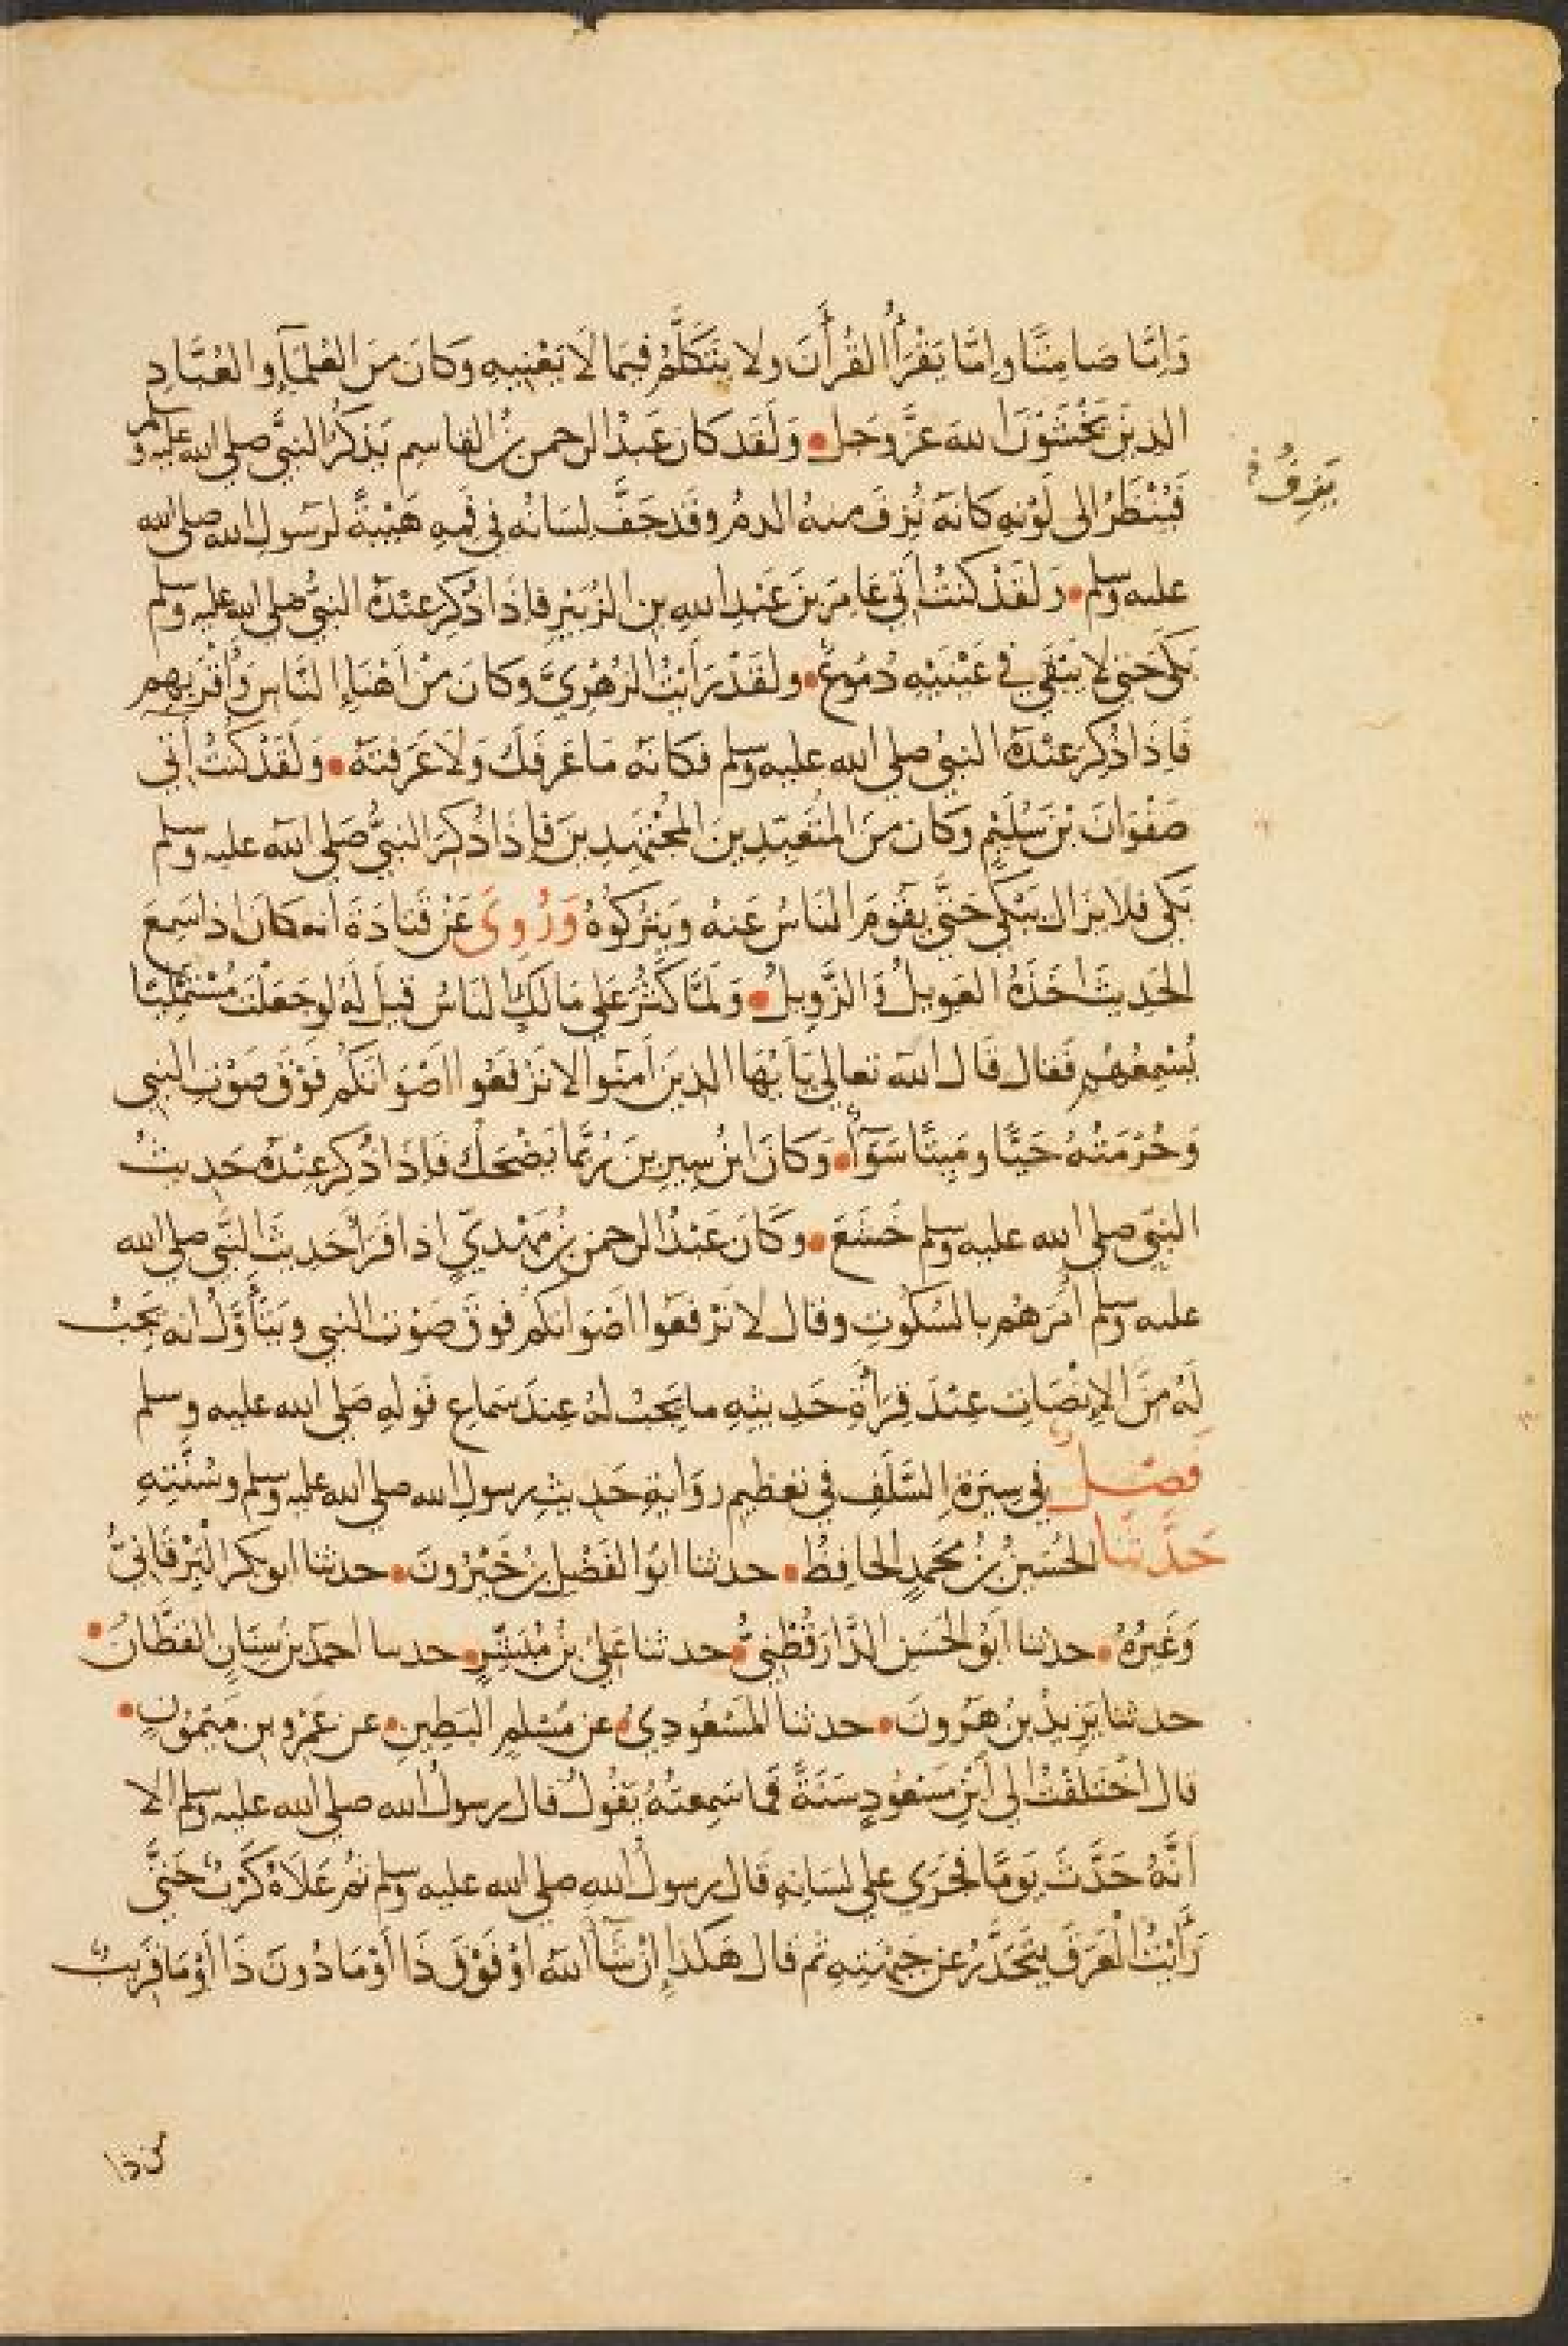 وَاِمَّا صَامِتًا وَاِمَّا يَقْرَأُ الْقُرْأٰنَ ولا يَتَكَلَّمُ فِيمَا لَا يَعْنِيهِ وَكَانَ مِنَ العُلَمَآءِ والعُبَّادِ
الذِينَ يَخْشَوْنَ اللهَ عَزَّ وجَل • وَلَقَد كان عَبْدُ الرحمن بْنُ القاسِمِ يَذكُرُ النَّبِيَّ صلى الله عليه وسلم
فَيُنْظَرُ الى لَوْنِهِ كَانَهُ نُزِفَ منهُ الدمُ وقَد جَفَّ لِسَانُه فِي فَمِهِ هَيْبَةً لرَسولِ الله صلى الله
عليه وسلم • وَلَقَدْ كنتُ اٰتِي عَامِرَ بنَ عَبْدِ اللهِ بن الزُبَيْرِ فاِذَا ذُكِرَ عِنْدَهُ النبيُّ صلى الله عليه وسلم
بَكَى حَتى لا يَبْقَي فِي عَيْنَيْهِ دُمُوعٌ • ولَقَدْ رَاَيْتُ الزُهْرِيَّ وَكانَ مِنْ اَهْنَاءِ النَّاسِ وَاَقْرَبِهم
فَاِذَا ذُكِرَ عِنْدَهُ النبيُ صلى الله عليه وسلم فكَانَهُ مَا عَرَفَكَ وَلَا عَرَفْتَهُ • وَلَقَدْ كُنْتُ اٰتِي
صَفْوَانَ بْنَ سُلَيْمٍ وَكان مِنَ المُتَعَبِّدِينَ المُجْتَهِدِينَ فاِذَا ذُكِرَ النبيُّ صَلى الله عليه وسلم
بَكى فلا يَزال يَبْكي حَتَّى يَقُومَ النَاسُ عَنهُ وَيَتْرُكُوهُ وَرُوِيَ عَنْ قَتَادَةَ انه كَانَ اذا سَمِعَ
الحَدِيثَ اَخَذَهُ العَوِيلُ وَالزَّوِيلُ • وَلَمَّا كَثُرَ عَلى مَالِكٍ النَاسُ قِيلَ لَهُ لو جَعَلْتَ مُسْتَمْلِيًا
يُسْمِعُهُم فَقال قَال الله تعالى يَا اَيُّهَا الذِينَ اٰمَنُوا لا تَرْفَعُوا اَصْوَاتَكُم فَوْقَ صَوْتِ النبي
وَحُرْمَتُهُ حَيًّا ومَيِتًا سَوَآءٌ • وَكانَ ابْنُ سِيرِينَ رُبَّمَا يَضْحَكُ فَاِذَا ذُكِرَ عِنْدَهُ حَدِيثُ
النبيّ صلى الله عليه وسلم خَشَعَ • وكَانَ عَبْدُ الرحمن بْنُ مَهْدِيٍّ اذا قَرَأ حَدِيثَ النَّبيّ صلى الله
عليه وسلم اَمَرَهُم بالسُكُوتِ وقال لَا تَرْفَعُوا اَصْوَاتَكُم فوْقَ صَوْتِ النبي وَيَتَأَوَّلُ انه يَجِبُ
لَهُ مِنَ الاِنْصَاتِ عِنْدَ قِرَاءَةِ حَدِيثِهِ ما يَجِبُ لهُ عِندَ سَمَاعِ قَولِهِ صَلى الله عليه وسلم
فَصْلٌ في سِيرَةِ السَّلَفِ في تعظِيمِ رِوَايةِ حَدِيثِ رسولِ الله صلى الله عليه وسلم وسُنَّتِهِ
حَدَّثَنَا الحُسَينُ بْنُ مُحَمَدٍ الحافِظُ • حدثنا ابُوا الفَضْلِ بْنُ خَيْرُونَ • حدثنا ابو بكر البَرْقَانِيُّ
وَغَيرُهُ • حدثنا ابُو الحَسَنِ الدَّارَقُطْنِيُّ • حدثنا عَلِيُ بْنُ مُبَشِّرٍ • حدثنا احمَدُ بنُ سِنَانٍ القَطَّانُ •
حدثنا يَزِيدُ بْنُ هَرُونَ • حدثنا المَسْعُودِيُ • عن مُسْلِمٍ البَطِينِ • عن عَمْرِو بن مَيْمُونٍ •
قال اخْتَلَفْتُ الى ابْنِ مَسْعُودٍ سَنَةً فما سَمِعتُهُ يَقُولُ قال رسولُ الله صلى الله عليه وسلم الا
اَنَّهُ حَدَّثَ يَومًا فَجَرَي على لسَانِهِ قَال رسولُ اللهِ صلى الله عليه وسلم ثم عَلَاهُ كَرْبٌ حَتَّى
رَاَيْتُ الْعَرَقَ يَتَحَدَّرُ عن جَبْهَتِهِ ثم قال هَكَذا اِنْ شَآءَ اللهُ اوْ فَوْقَ ذَا اَوْ مَا دُونَ ذَا اَوْ مَا قَرِيبٌ
من ذا